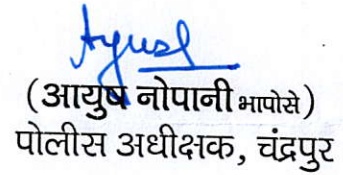 Ayush
(आयुष नोपानी भापोसे)
पोलीस अधीक्षक, चंद्रपुर